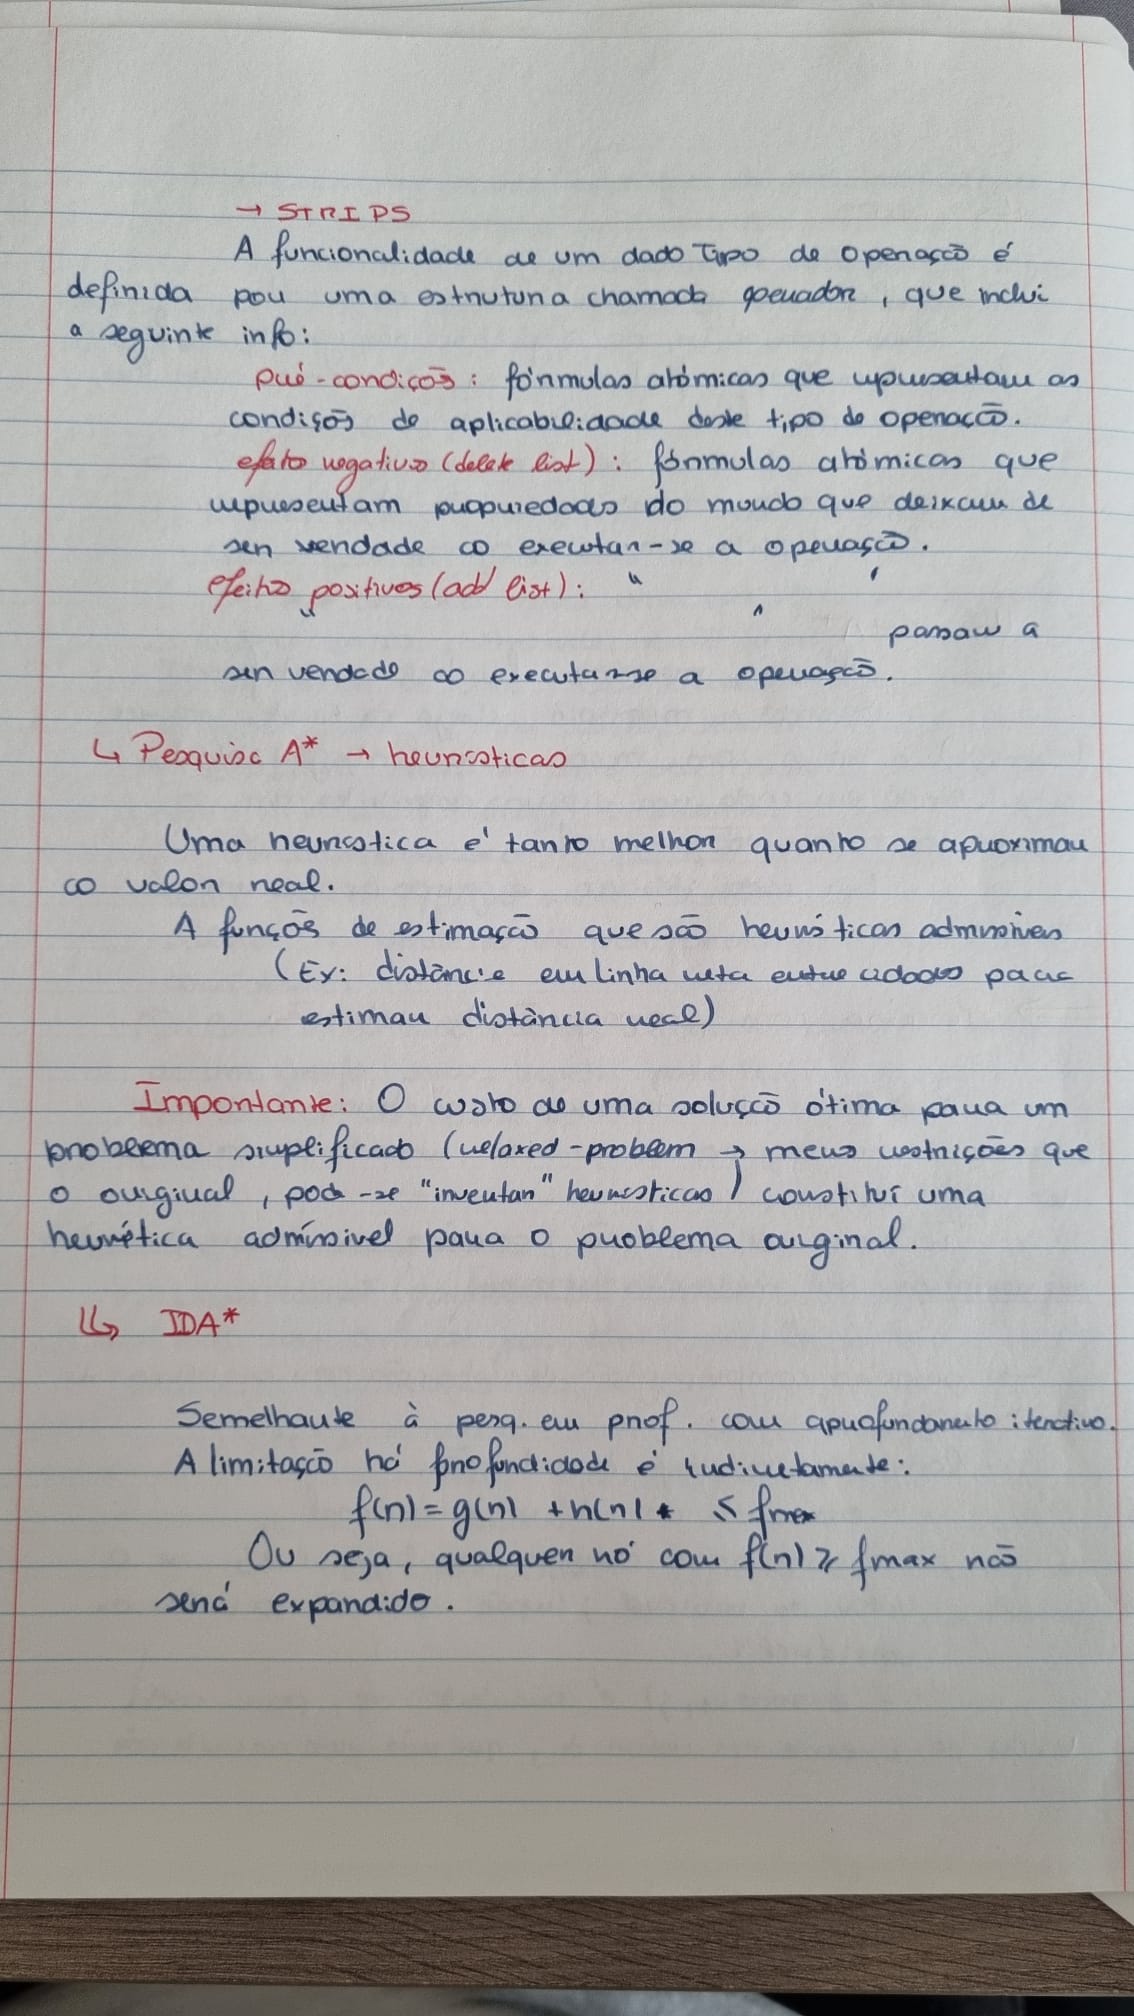 → STRIPS
A funcionalidade de um dado tipo de operação é
definida por uma estrutura chamada operador, que inclui
a seguinte info:
pré-condições: fórmulas atómicas que representam as
condições de aplicabilidade deste tipo de operação.
efeitos negativos (delete list): fórmulas atómicas que
representam propriedades do mundo que deixam de
ser verdade ao executar-se a operação.
efeitos positivos (add list): " "
" passam a
ser verdade ao executar-se a operação.
↳ Pesquisa A* → heurísticas
Uma heurística é tanto melhor quanto se aproximar
ao valor real.
A funções de estimação que são heurísticas admissíveis
(Ex: distância em linha reta entre cidades para
estimar distância real)
Importante: O custo de uma solução ótima para um
problema simplificado (relaxed-problem → menos restrições que
o original, pode-se "inventar" heurísticas) constitui uma
heurística admissível para o problema original.
↳ IDA*
Semelhante à pesq. em prof. com aprofundamento iterativo.
A limitação há profundidade é indiretamente:
f(n) = g(n) + h(n) ≤ fmax
Ou seja, qualquer nó com f(n) ≥ fmax não
será expandido.